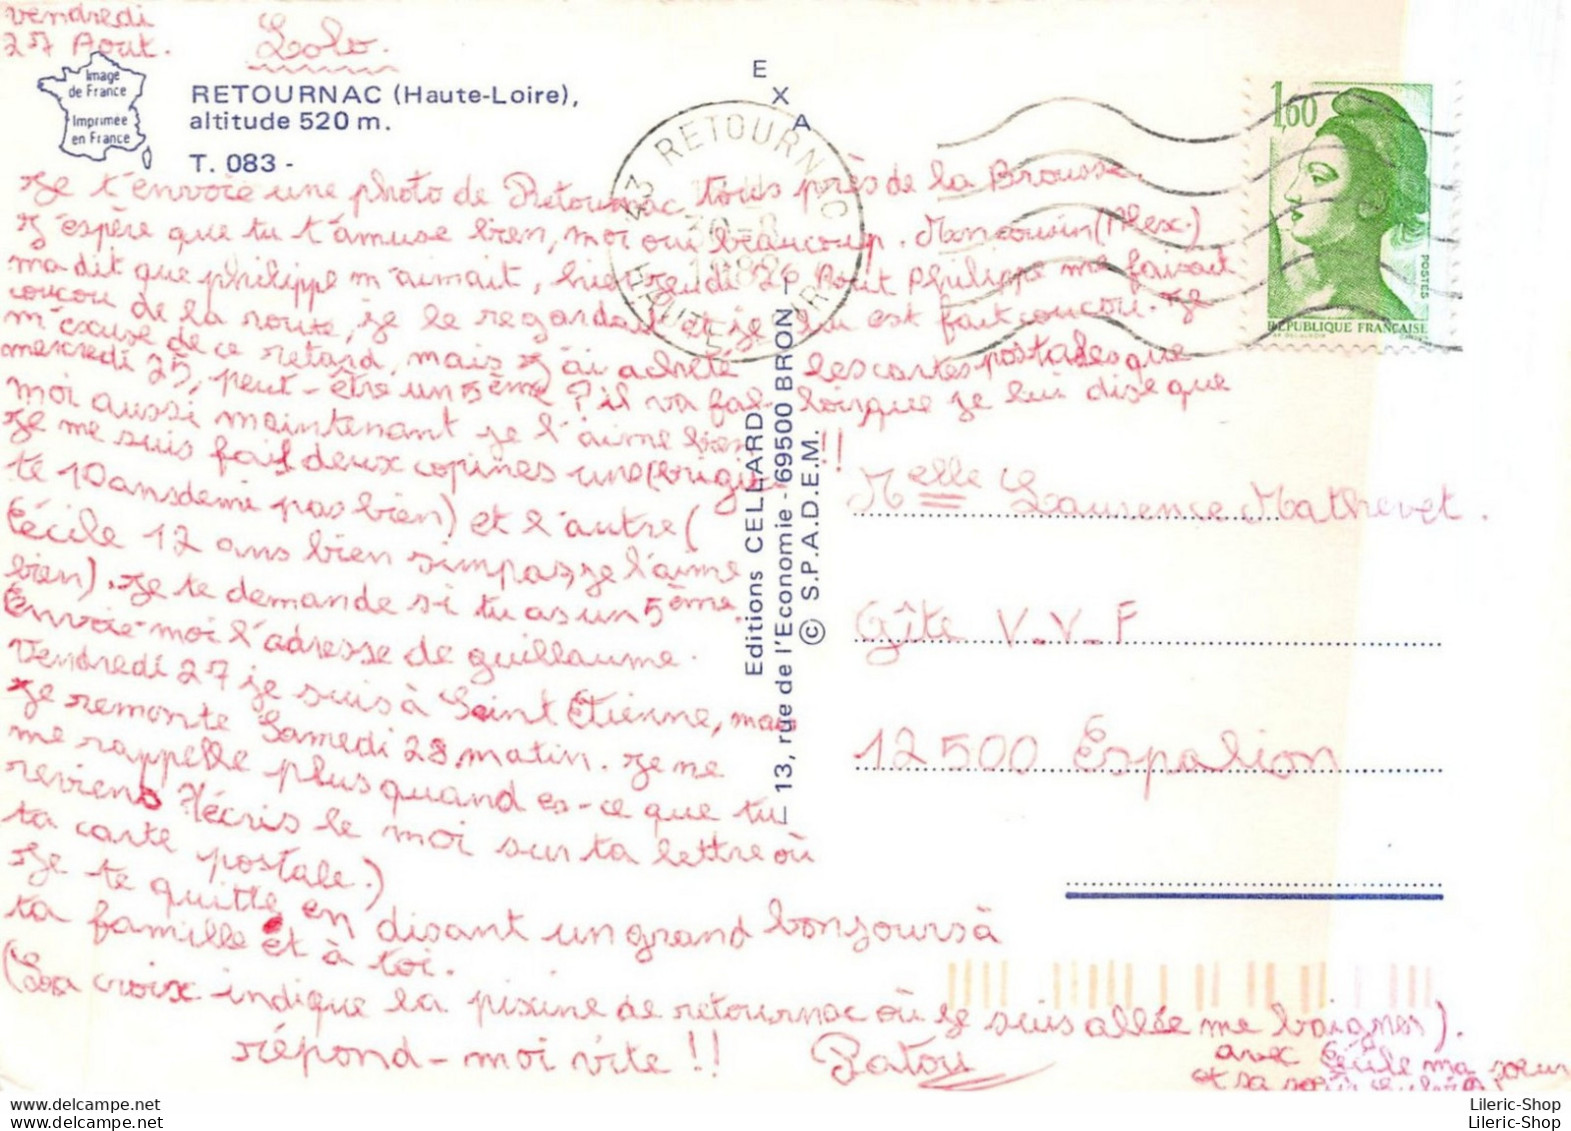 vendredi
27 Aout.
Lolo.
Image
de France
Imprimée
en France
RETOURNAC (Haute-Loire),
altitude 520 m.
T. 083 -
E
X
A
43 RETOURNAC
30-8
1982
HAUTE LOIRE
1,60
POSTES
RÉPUBLIQUE FRANÇAISE
Je t'envoie une photo de Retournac tous près de la Brousse.
J'espère que tu t'amuse bien, moi oui beaucoup. Mon cousin (Alex.)
ma dit que philippe m'aimait, hier Jeudi 26 Aout Philippe me faisait
coucou de la route, je le regardais et je lui est fait coucou. Je
m'excuse de ce retard, mais j'ai acheté les cartes postales que
mercredi 25, peut-être un 5ème ? il va fal- loirque je lui dise que
moi aussi maintenant je l'aime bien !!
Je me suis fait deux copines une (Brigit-
te 10 ans demie pas bien) et l'autre (
Cécile 12 ans bien simpas, je l'aime
bien). Je te demande si tu as un 5ème.
Envoie-moi l'adresse de guillaume.
Vendredi 27 je suis à Saint Etienne, mais
Je remonte Samedi 28 matin. Je ne
me rappelle plus quand es-ce que tu
reviens ? (écris le moi sur ta lettre où
ta carte postale.)
Je te quitte en disant un grand bonjours à
ta famille et à toi.
(La croix indique la pixine de retournac où je suis allée me baigner).
avec Cécile ma soeur
et sa soeur
répond-moi vite !! Patou
Editions CELLARD
13, rue de l'Economie - 69500 BRON
© S.P.A.D.E.M.
Melle Laurence Mathevet.
Gîte V.V.F
12500 Espalion
Lileric-Shop
Lileric-Shop